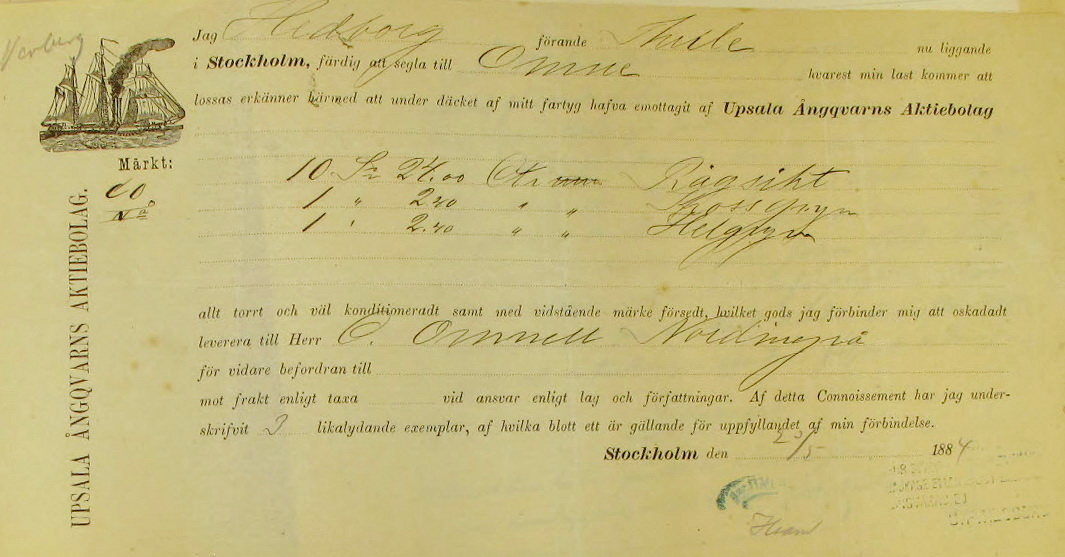 Jag Hedborg förande Thule nu liggande
i Stockholm, färdig att segla till Omne hvarest min last kommer att
lossas erkänner härmed att under däcket af mitt fartyg hafva emottagit af Upsala Ångqvarns Aktiebolag
Märkt:
CO
No
10 Sr 24.00 Rågsikt
1 " 2.40 " " Krossgryn
1 " 2.40 " " Helgryn
UPSALA ÅNGQVARNS AKTIEBOLAG.
allt torrt och väl konditioneradt samt med vidstående märke försedt, hvilket gods jag förbinder mig att oskadadt
leverera till Herr C. Omnell Nordingrå
för vidare befordran till
mot frakt enligt taxa vid ansvar enligt lag och författningar. Af detta Connoissement har jag under-
skrifvit 3 likalydande exemplar, af hvilka blott ett är gällande för uppfyllandet af min förbindelse.
Stockholm den 23/5 1884